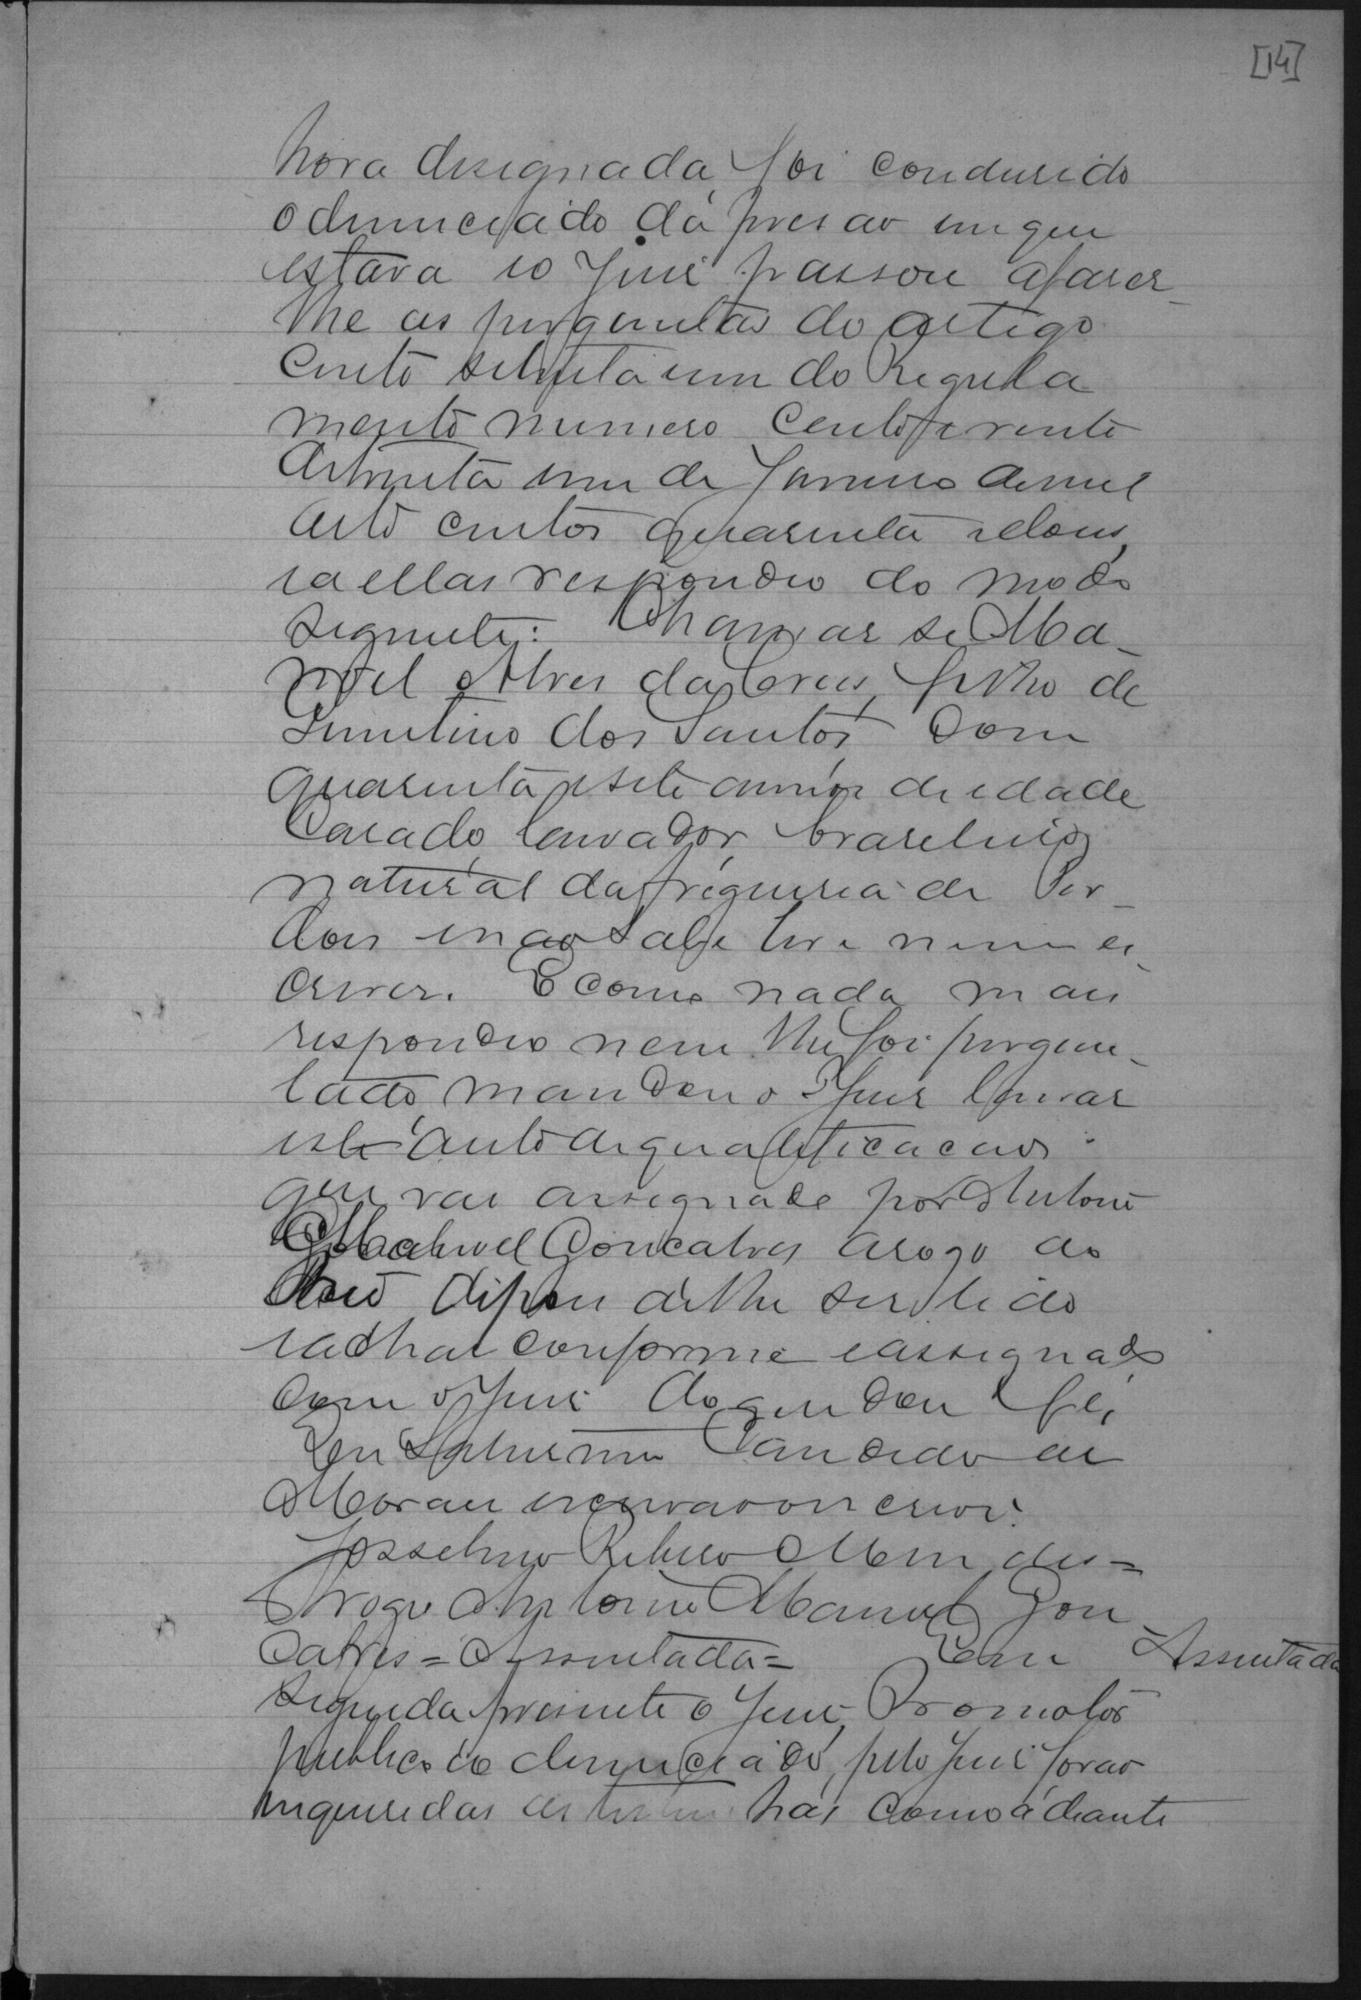 [14]
hora designada, foi condusido
o denunciado da prisão em que
estava e o Juis passou afazer-
lhe as perguntas do artigo
cento setenta um do Regula
mento numero cento e vinte
de trinta um de Janeiro de mil
oito centos quarenta e dous,
e a ellas respondeo do modo
seguinte: Chamar se Ma-
noel Alves da Crus, filho de
dos Santos, com
quarenta e sete annos de idade
Casado, lavrador, brasileiro,
natural da freguesia de Per-
dões e não sabe ler e nem es-
crever. E como nada mais
respondeo nem lhe foi pergun-
tado, mandou o Juis lavrar
este auto de qualificacão
que vai assignado por Antonio
Manoel Goncalves arogo do
Reo depois de lhe ser lido
e achar conforme e assignado
com o Juis do que dou fé,
Eu Saturnino Candido de
Moraes escrivão o escrevi.
Josselino Ribeiro Mendes =
Arogo Antonio Manoel Gon
calves = Assentada = Em
Assentada
seguida presente o Juis, Promotor
publico e o denunciado, pelo Juis forão
inqueridas as testemunhas como adiante